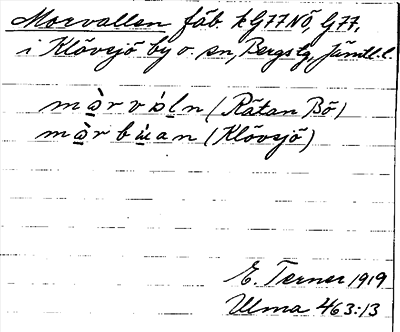 Morvallen fäb. t. G77 NÖ, G77,
i Klövsjö by o. sn, Bergs tg, Jämtl. l.
màrvàln (Rätan Bö)
màrbùan (Klövsjö)
E. Terner 1919
Ulma 463:13